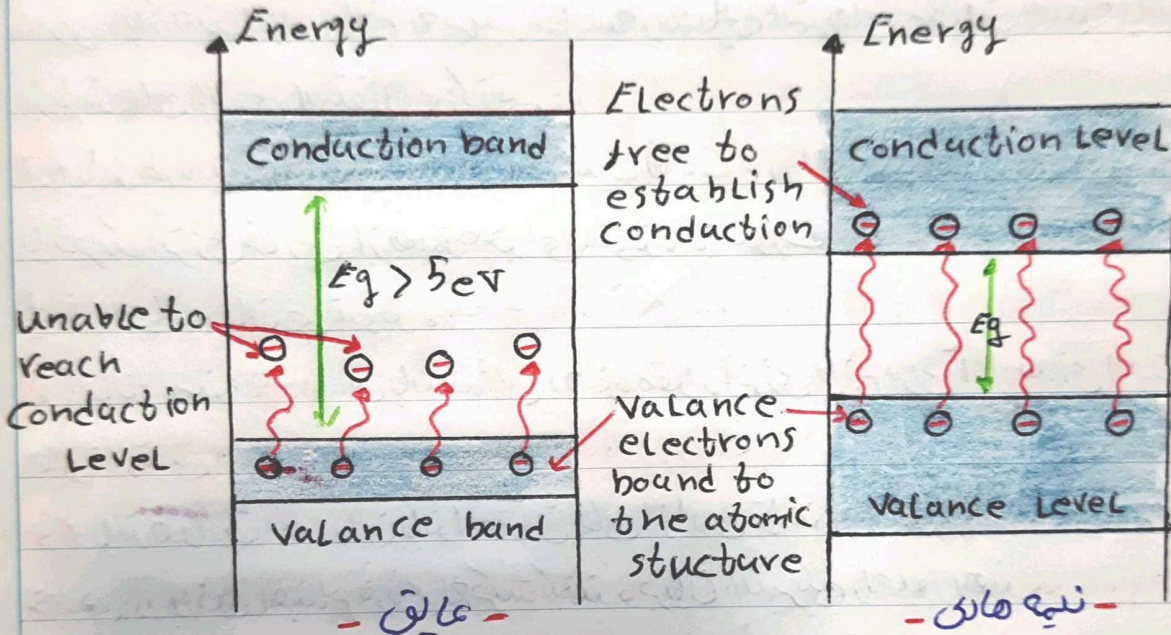 Energy
Conduction band
Eg > 5 ev
unable to
reach
conduction
Level
Valance band
- عایق -
Electrons
free to
establish
conduction
Valance
electrons
bound to
the atomic
stucture
Energy
Conduction Level
Eg
Valance Level
- نیمه هادی -